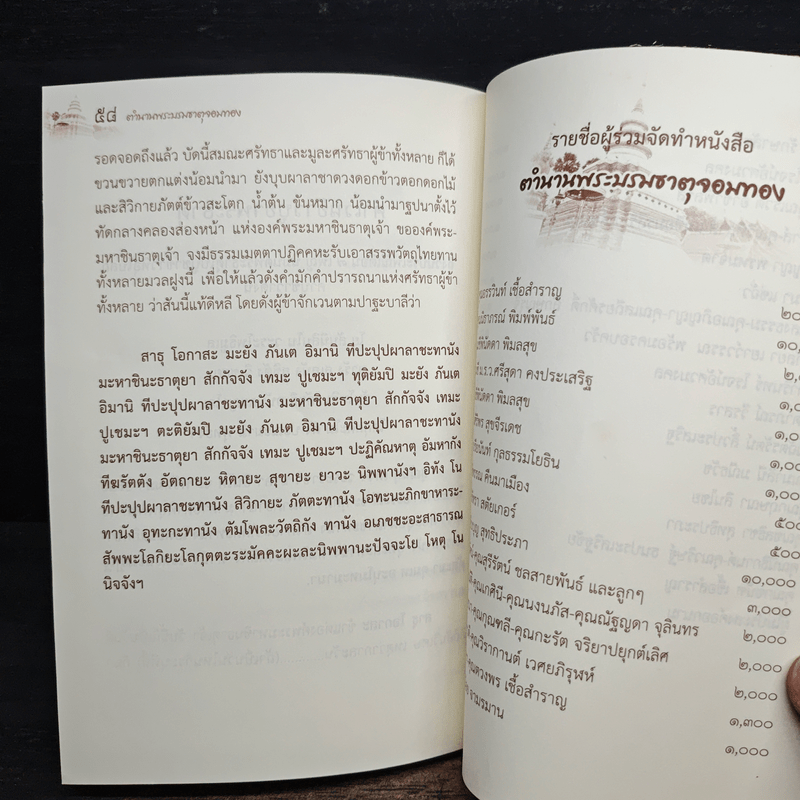 ๕๘ ตำนานพระบรมธาตุจอมทอง
รอดจอดถึงแล้ว บัดนี้สมณะศรัทธาและมูละศรัทธาผู้ข้าทั้งหลาย ก็ได้
ขวนขวายตกแต่งน้อมนำมา ยังบุบผาลาชาดวงดอกข้าวตอกดอกไม้
และสิวิกายภัตต์ข้าวสะโตก น้ำต้น ขันหมาก น้อมนำมาฐปนาตั้งไว้
ทัดกลางคลองส่องหน้า แห่งองค์พระมหาชินธาตุเจ้า ขอองค์พระ-
มหาชินธาตุเจ้า จงมีธรรมเมตตาปฏิคคหะรับเอาสรรพวัตถุไทยทาน
ทั้งหลายมวลฝูงนี้ เพื่อให้แล้วดั่งคำมักคำปรารถนาแห่งศรัทธาผู้ข้า
ทั้งหลาย ว่าสันนี้แท้ดีหลี โดยดั่งผู้ข้าจักเวนตามปาฐะบาลีว่า
สาธุ โอกาสะ มะยัง ภันเต อิมานิ ทีปะปุปผาลาชะทานัง
มะหาชินะธาตุยา สักกัจจัง เทมะ ปูเชมะฯ ทุติยัมปิ มะยัง ภันเต
อิมานิ ทีปะปุปผาลาชะทานัง มะหาชินะธาตุยา สักกัจจัง เทมะ
ปูเชมะฯ ตะติยัมปิ มะยัง ภันเต อิมานิ ทีปะปุปผาลาชะทานัง
มะหาชินะธาตุยา สักกัจจัง เทมะ ปูเชมะฯ ปะฏิคัณหาตุ อัมหากัง
ทีฆรัตตัง อัตถายะ หิตายะ สุขายะ ยาวะ นิพพานังฯ อิทัง โน
ทีปะปุปผาลาชะทานัง สิวิกายะ ภัตตะทานัง โอทะนะภิกขาหาระ-
ทานัง อุทะกะทานัง ตัมโพละวัตถิกัง ทานัง อเภชชะอะสาธารณ
สัพพะโลกิยะโลกุตตะระมัคคะผะละนิพพานะปัจจะโย โหตุ โน
นิจจังฯ
รายชื่อผู้ร่วมจัดทำหนังสือ
ตำนานพระบรมธาตุจอมทอง
เชื้อสำราญ
พิมพ์พันธ์
พิมลสุข
ศรีสุดา คงประเสริฐ
พิมลสุข
สุขจีรเดช
กุลธรรมโยธิน
คืนมาเมือง
สตัยเกอร์
สุทธิประภา ๑๐,๐๐๐
คุณสุรีรัตน์ ชลสายพันธ์ และลูกๆ ๓,๐๐๐
คุณเกศินี-คุณนงนภัส-คุณณัฐญดา จุลินทร ๒,๐๐๐
คุณกุณฑลี-คุณกะรัต จริยาปยุกต์เลิศ ๒,๐๐๐
คุณวิรากานต์ เวศยภิรุฬห์ ๒,๐๐๐
ดวงพร เชื้อสำราญ ๑,๓๐๐
งามรมาน ๑,๐๐๐